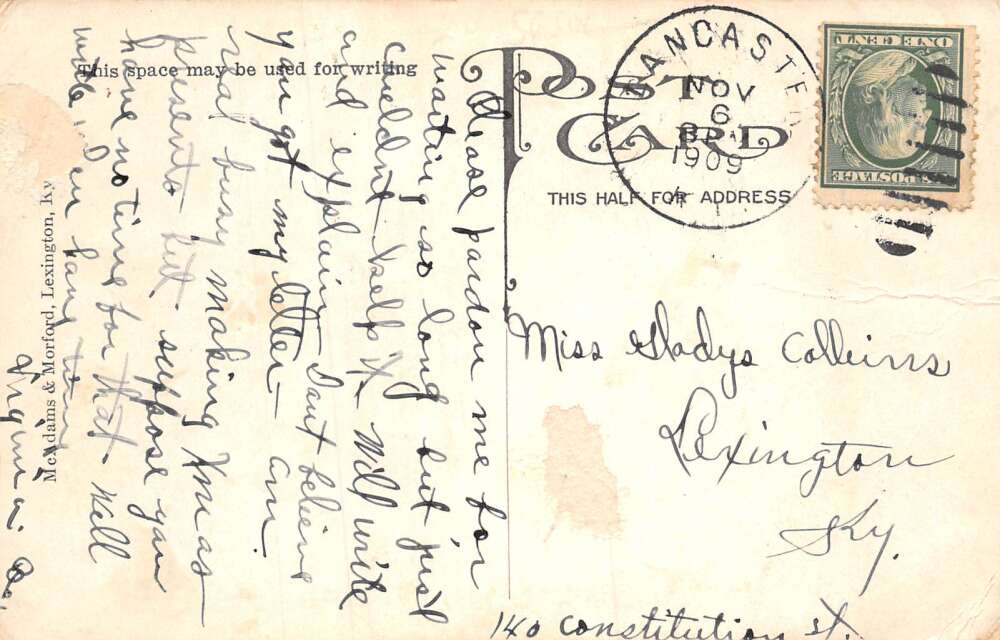 This space may be used for writing
POST CARD
THIS HALF FOR ADDRESS
LANCASTER
NOV
6
1909
ONE CENT
POSTAGE
Miss Gladys Colleins
Lexington
Ky.
140 Constitution St.
Please pardon me for
waiting so long but just
couldent help it. Will write
and explain, dant believe
you got my letter – am
real busy making Xmas
presents but suppose you
have no time for that. Well
write
McAdams & Morford, Lexington, Ky